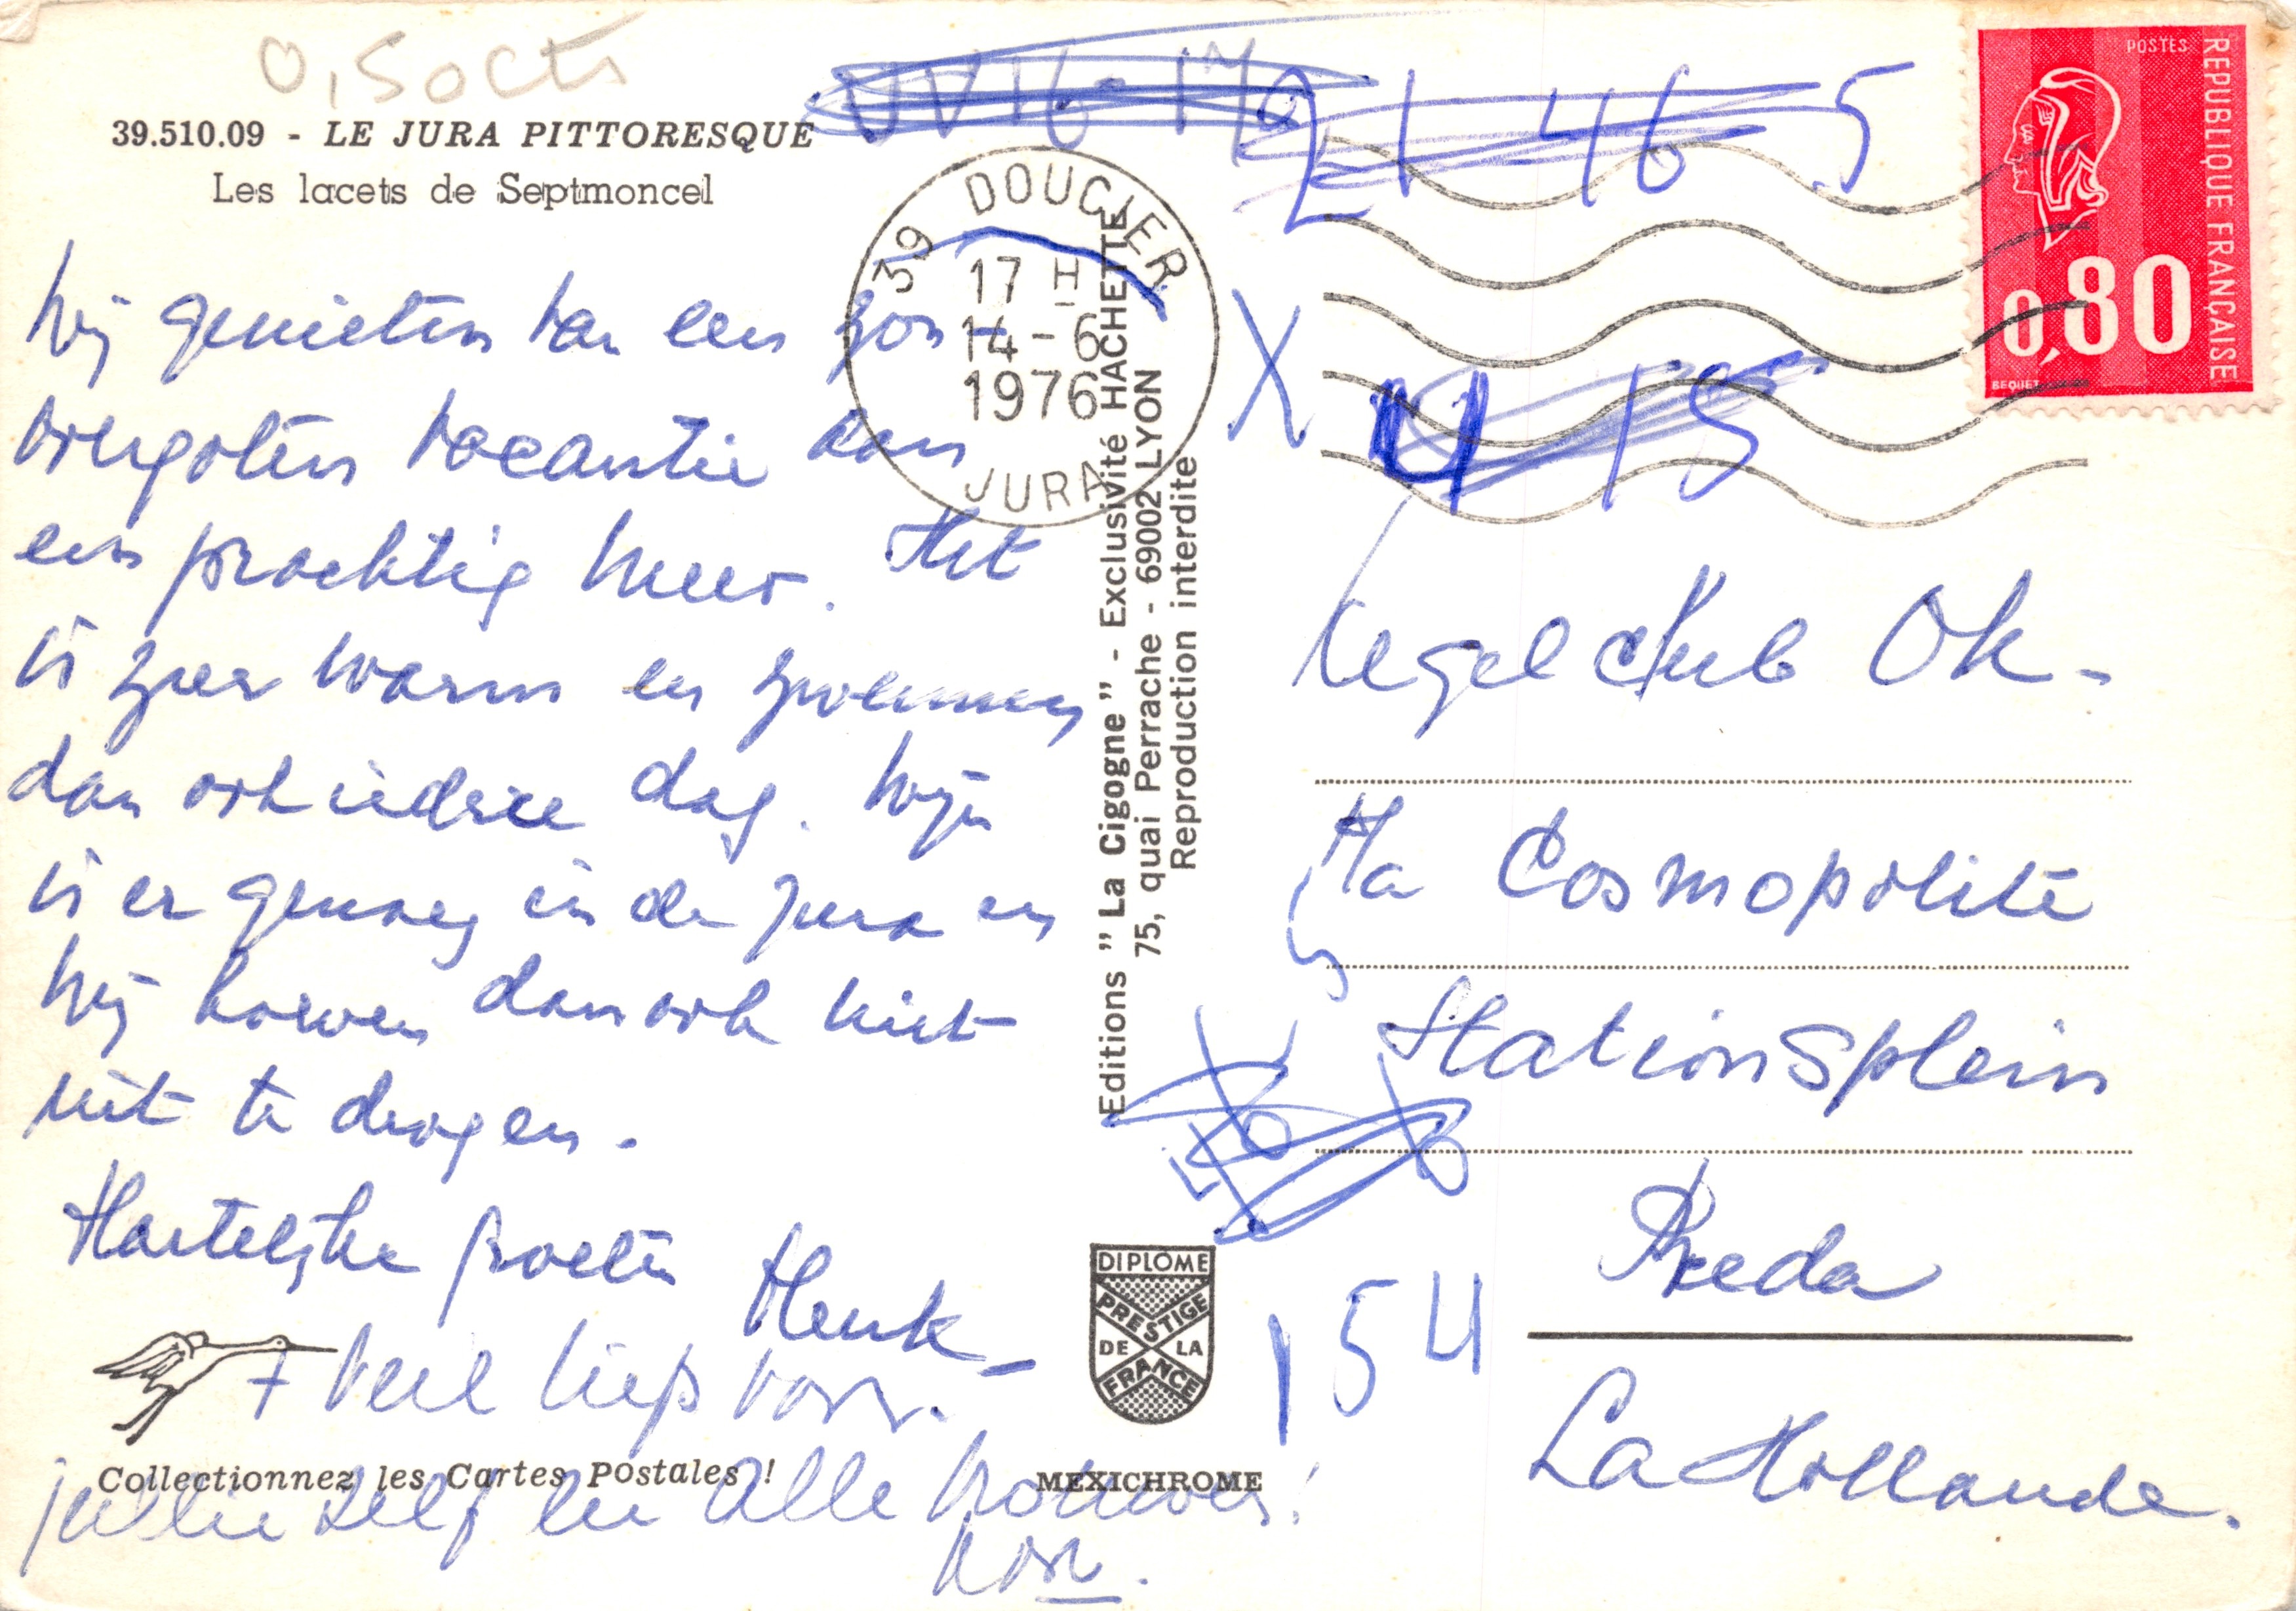 0,50cts
39.510.09 - LE JURA PITTORESQUE
Les lacets de Septmoncel
Wij genieten van een zon
overgoten vacantie aan
een prachtig meer. Het
is zeer warm en zwemmen
dan ook iedere dag. Wijn
is er genoeg in de Jura en
wij hoeven dan ook niet
uit te drogen.
Hartelijke groeten Henk
+ veel liefs voor
jullie zelf en alle vrouwen!
Collectionnez les Cartes Postales !
MEXICHROME
DIPLOME
PRESTIGE
DE LA
FRANCE
Editions "La Cigogne" - Exclusivité HACHETTE
75, quai Perrache - 69002 LYON
Reproduction interdite
39 DOUCIER
17 H
14-6
1976
JURA
21-46.5
X
15
POSTES
REPUBLIQUE FRANÇAISE
0,80
BEQUET
Kegelclub OK-
Ha Cosmopolite
Stationsplein
Breda
La Hollande.
154